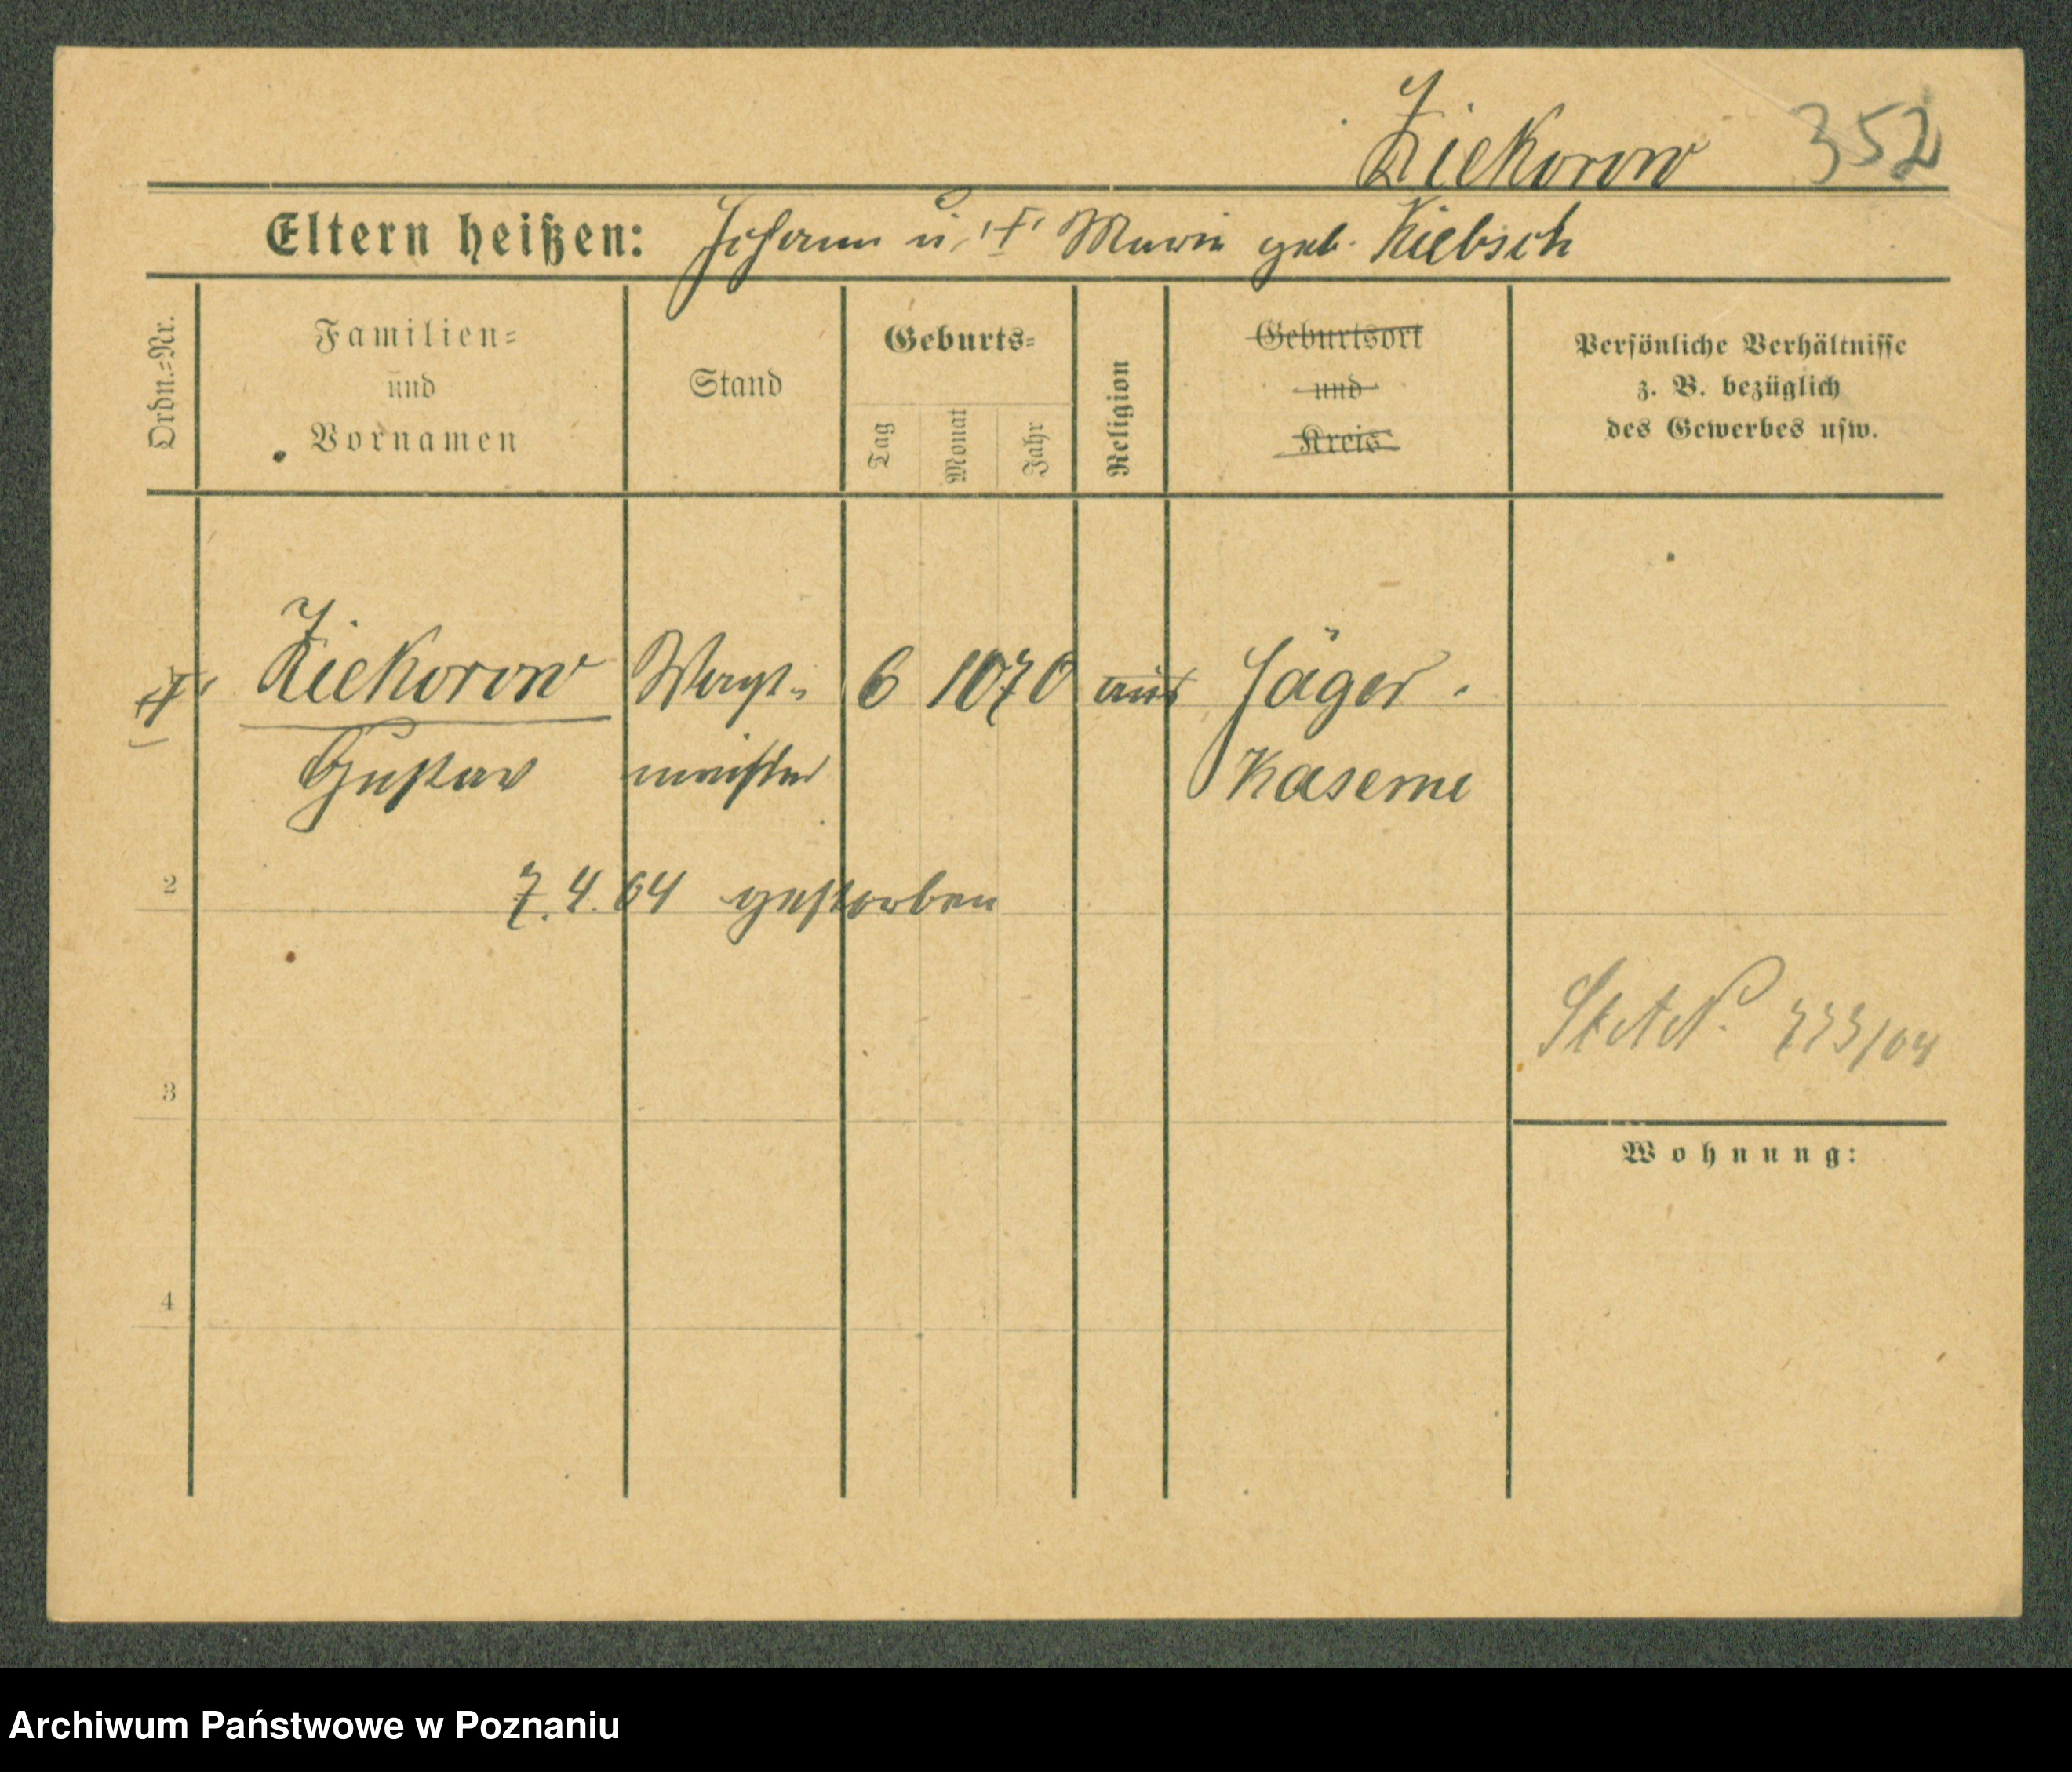 Ziekorow 352
Eltern heißen: Johann u. Marie geb. Kiebsch
Ordn.-Nr.
Familien-
und
Vornamen
Stand
Geburts-
Tag
Monat
Jahr
Religion
Geburtsort
und
Kreis
Persönliche Verhältnisse
z. B. bezüglich
des Gewerbes usw.
Ziekorow Wagt- 6 10 70 aus Jäger-
Gustav meister Kaserne
2
7.4.04 gestorben
StAN. 733/04
3
Wohnung:
4
Archiwum Państwowe w Poznaniu